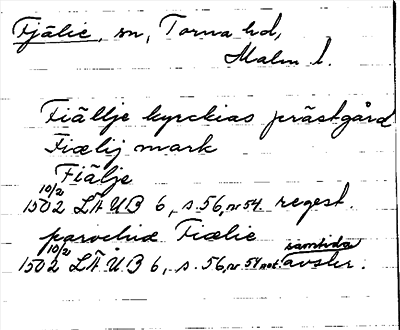 Fjälie, sn, Torna hd,
Malm l.
Fiällje kyrckias prästgård
Fiælij mark
Fiälje
1502 10/2 LÄUB 6, s. 56, nr 54. regest.
parochiæ Fiælie
1502 10/2 LÄUB 6, s. 56, nr 54 not. samtida avskr.